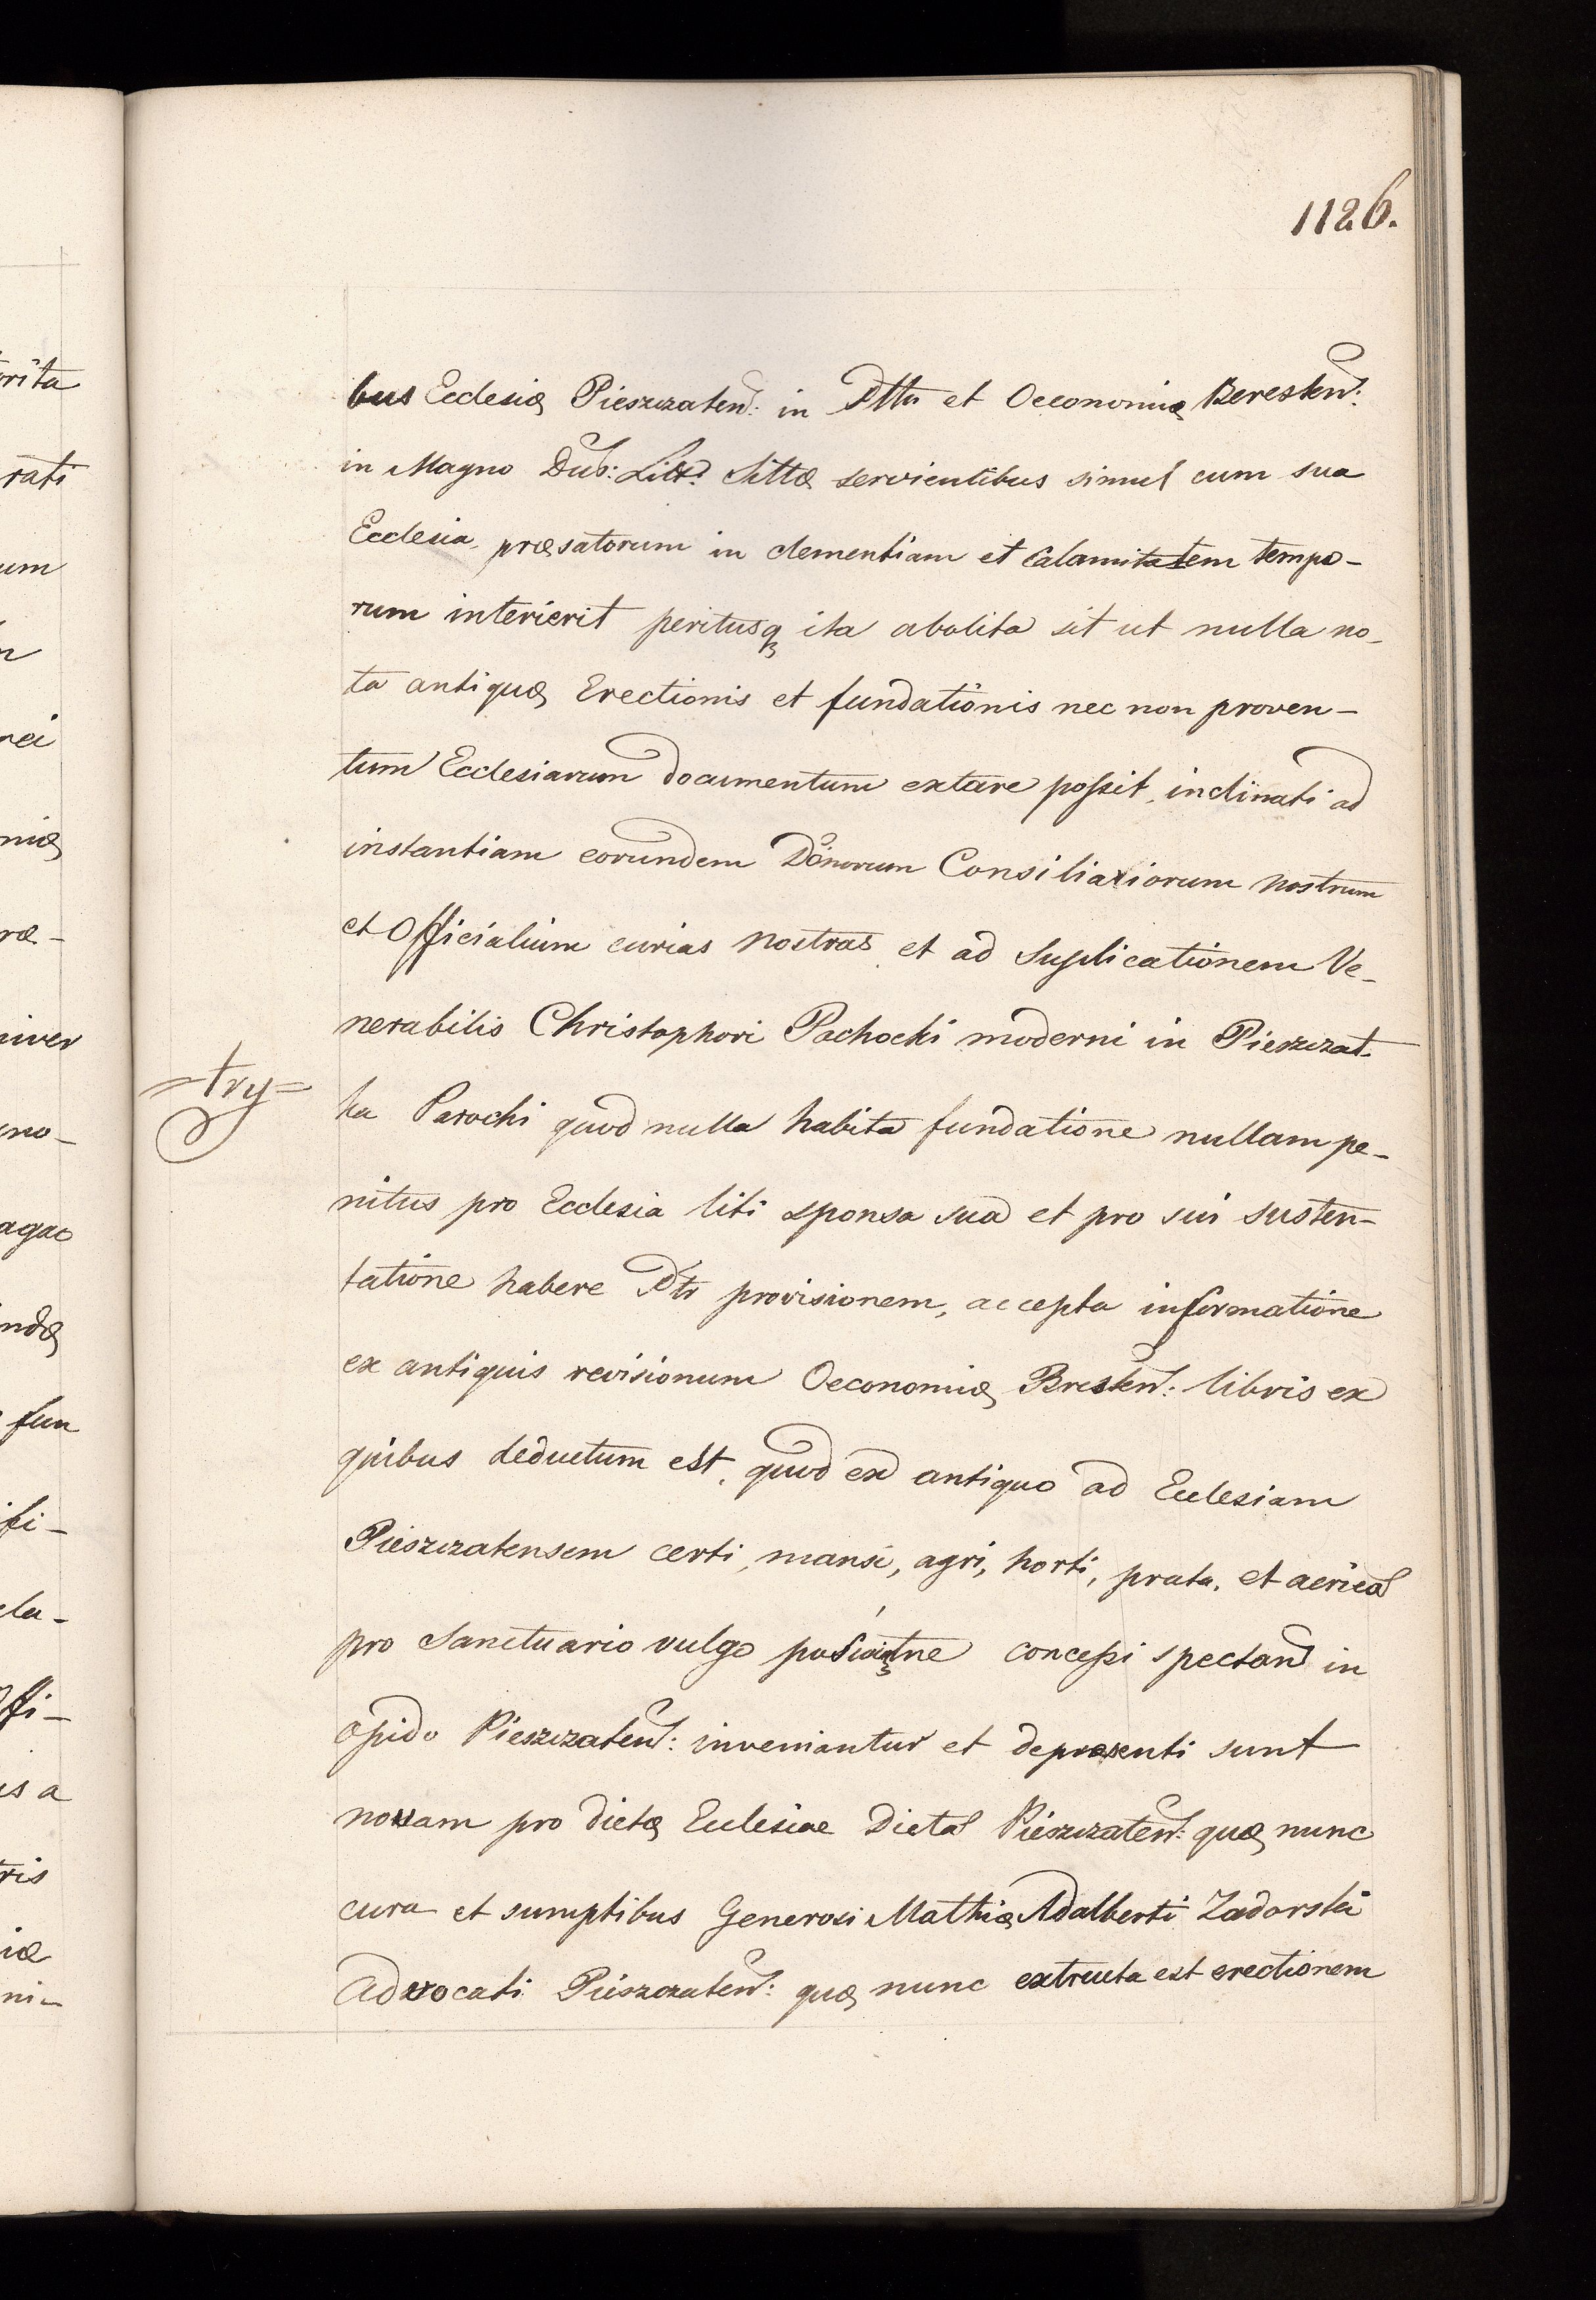 1126.
bus Ecclesiæ Pieszczaten: in Pttu et Oeconomia Beresten:
in Magno Duc: Litt: Sittæ servientibus simul cum sua
Ecclesia præsatorum in clementiam et calamitatem tempo-
rum interierit peritusq ita abolita sit ut nulla no-
ta antiquæ Erectionis et fundationis nec non proven-
tum Ecclesiarum documentum extare possit, inclinati ad
instantiam eorundem Dönorum Consiliariorum nostrum
et Officialium curias nostras et ad Suplicationem Ve-
nerabilis Christophori Pachocki moderni in Pieszczat-
=try=
ka Parochi quod nulla habita fundatione nullam pe-
nitus pro Ecclesia liti sponsa sua et pro sui susten-
tatione habere Ptr provisionem, accepta informatione
ex antiquis revisionum Oeconomiæ Bresten: libris ex
quibus deductum est, quod ex antiquo ad Ecclesiam
Pieszczatensem certi, mansi, agri, horti, prata, et aericas
pro Sanctuario vulgo concessi spectan in
opido Pieszczaten: inveniantur et depraesenti sunt
novam pro dictæ Ecclesiae Dictas Pieszczaten: quæ nunc
cura et sumptibus Generosi Mathiæ Adalberti Zadorski
advocati Pieszczaten: quæ nunc extructa est erectionem